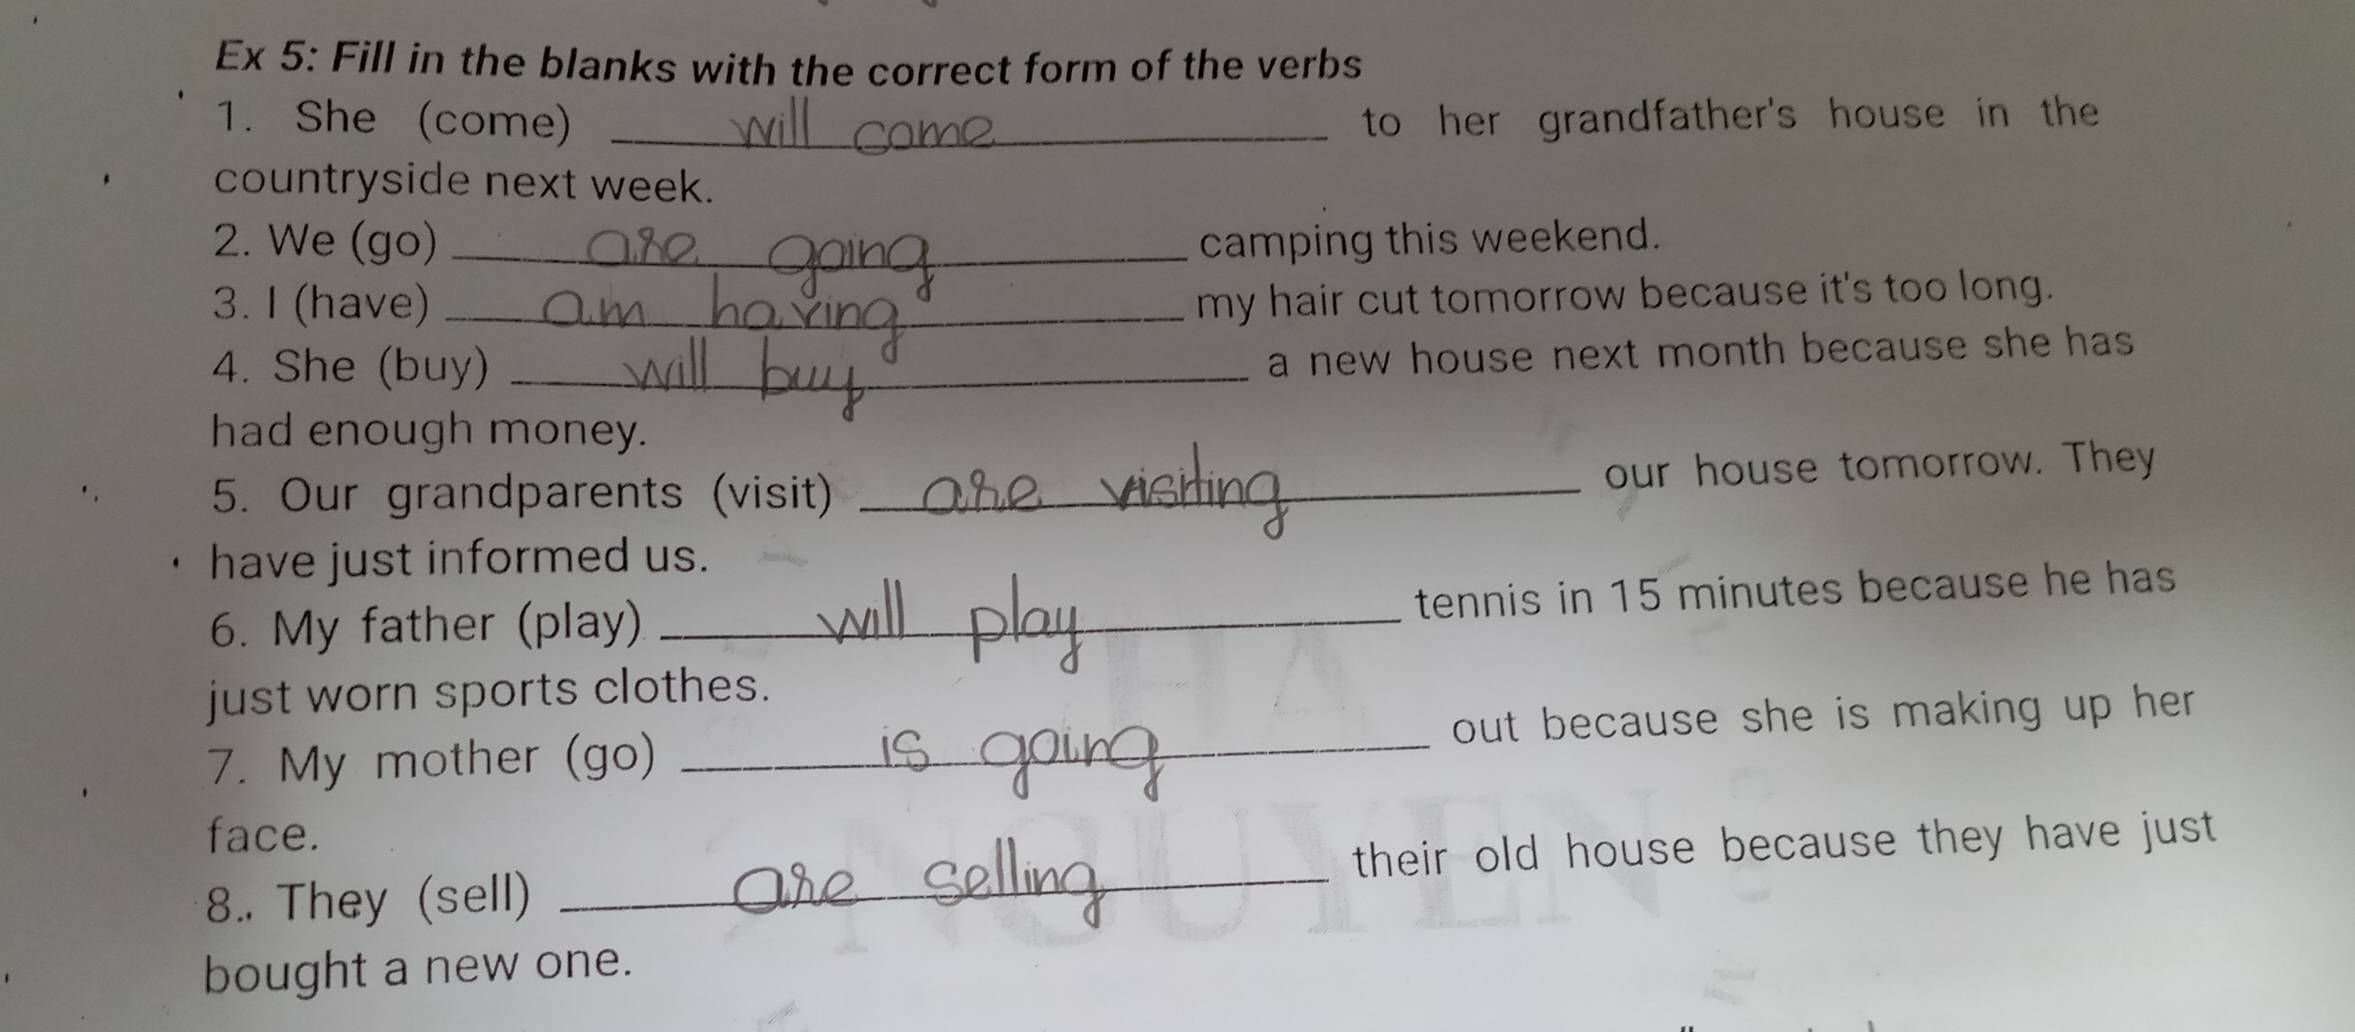 Ex 5: Fill in the blanks with the correct form of the verbs
1. She (come) will come to her grandfather's house in the
countryside next week.
2. We (go) are going camping this weekend.
3. I (have) am having my hair cut tomorrow because it's too long.
4. She (buy) will buy a new house next month because she has
had enough money.
5. Our grandparents (visit) are visiting our house tomorrow. They
have just informed us.
6. My father (play) will play tennis in 15 minutes because he has
just worn sports clothes.
7. My mother (go) is going out because she is making up her
face.
8.. They (sell) are selling their old house because they have just
bought a new one.